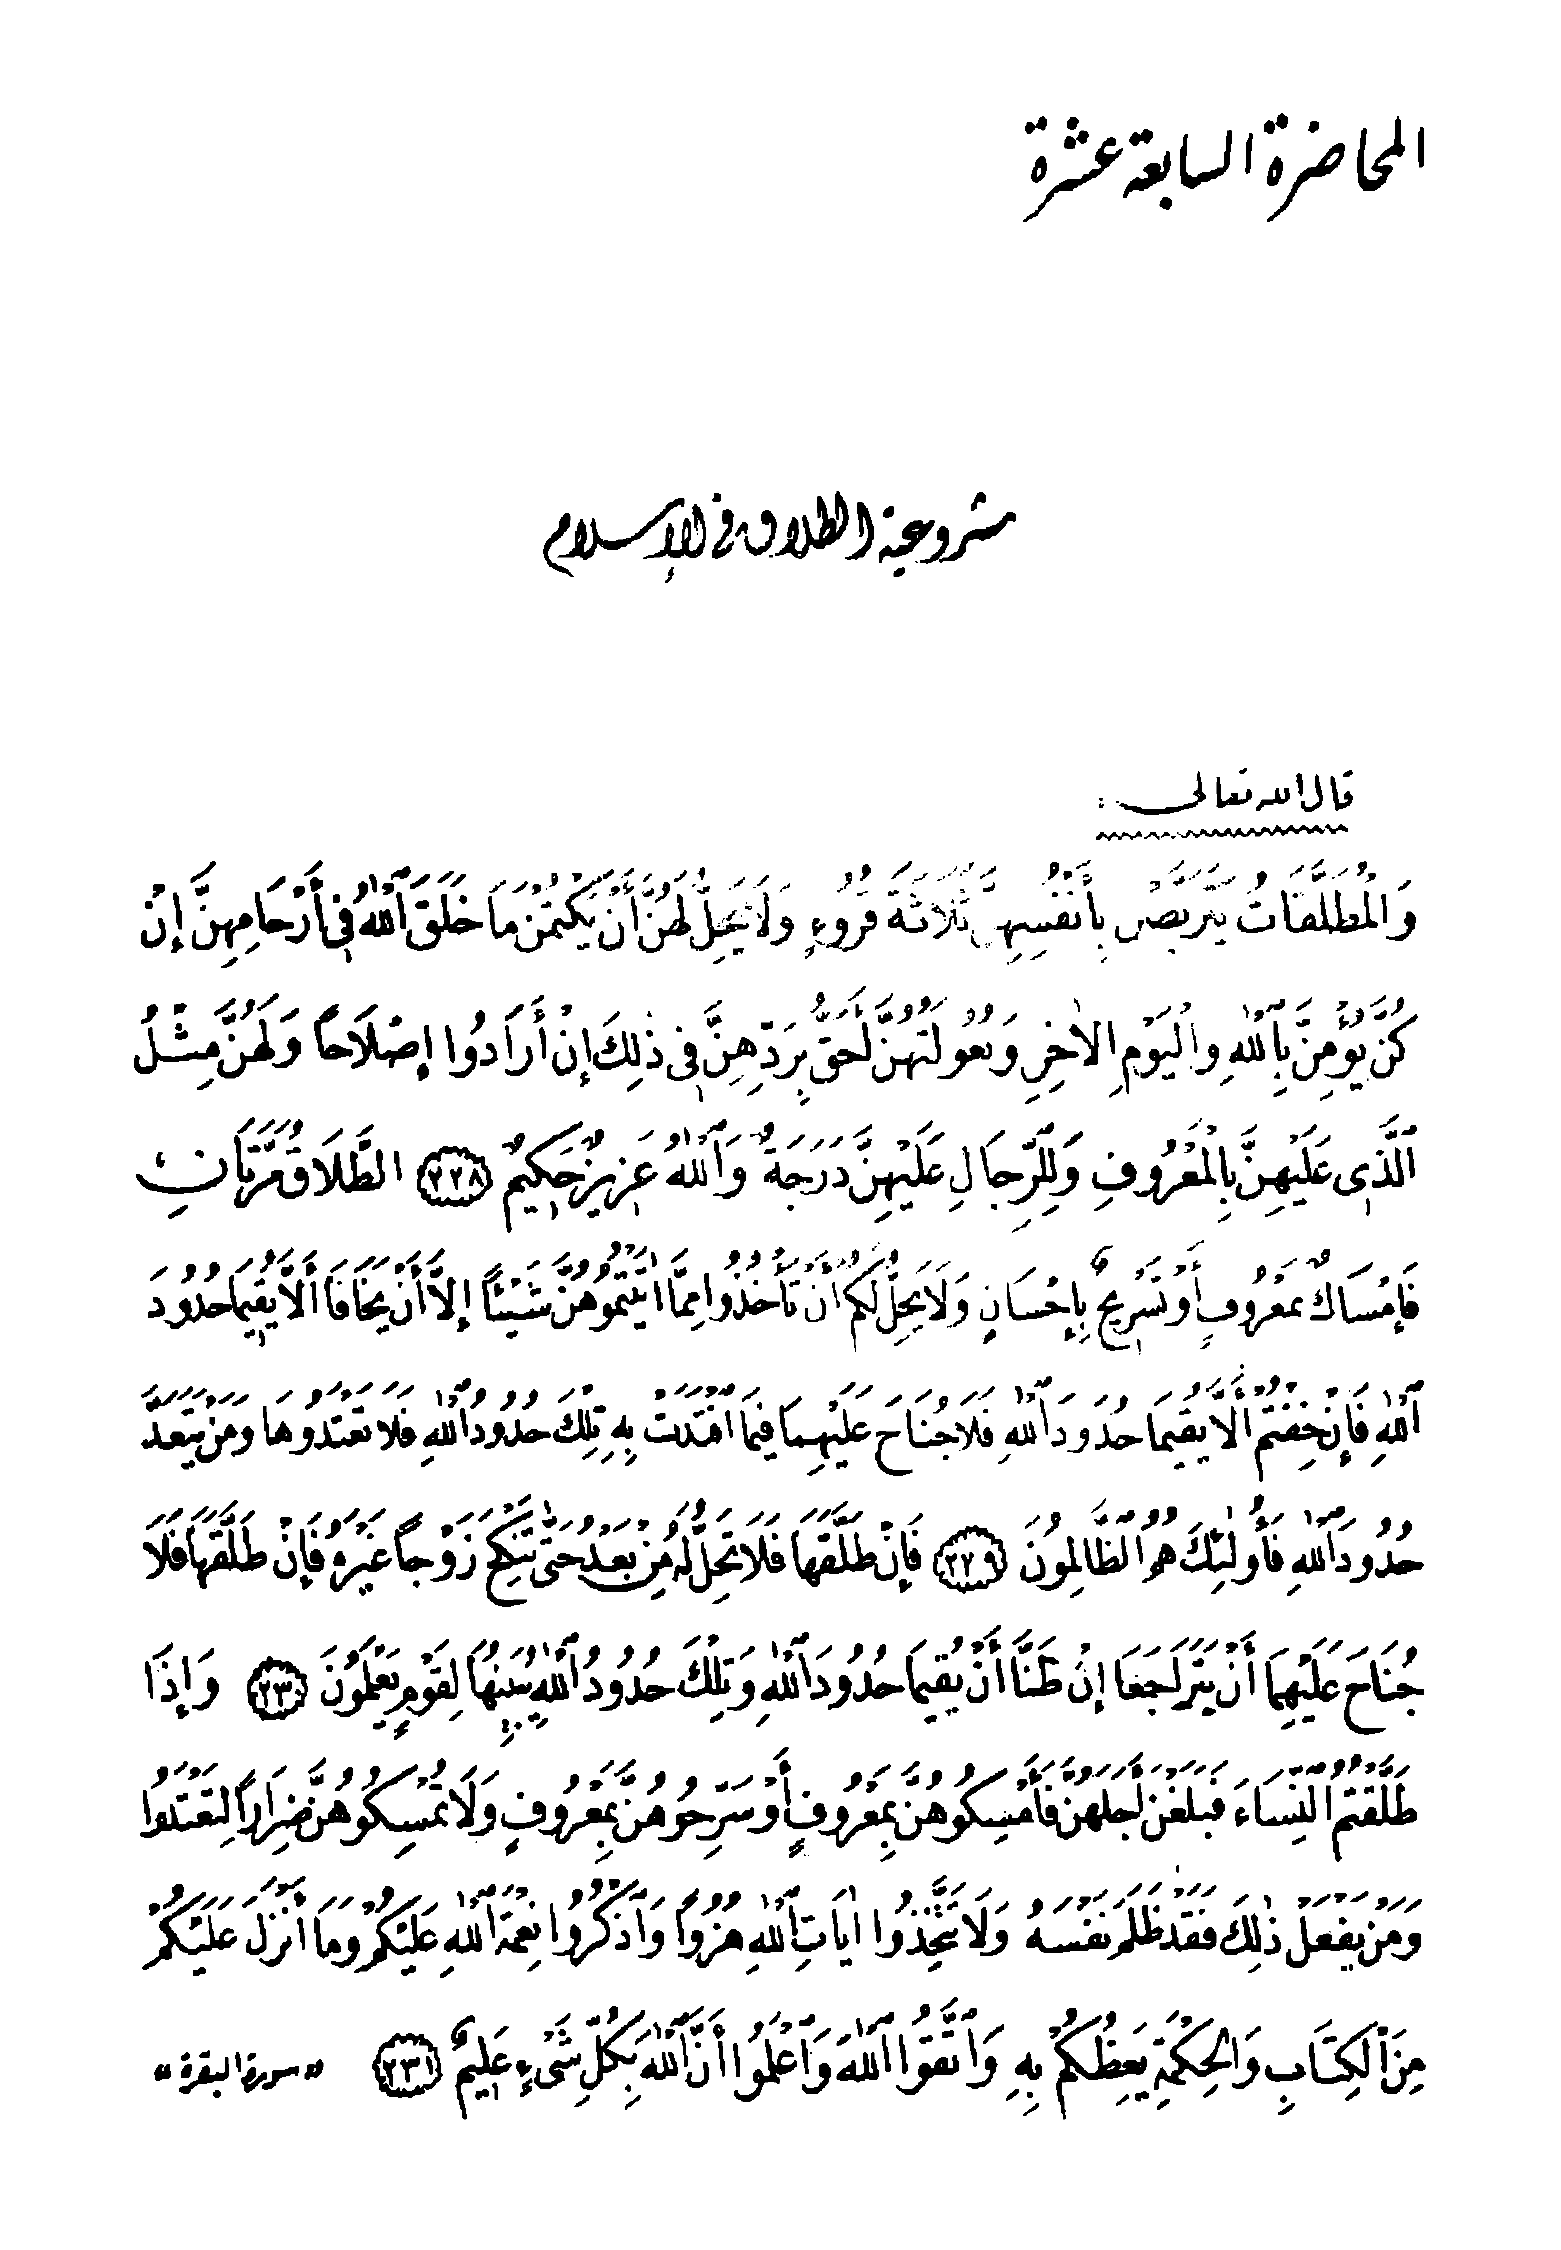 المحاضرة السابعة عشرة
مشروعية الطلاق في الإسلام
قال الله تعالى :
وَالْمُطَلَّقَاتُ يَتَرَبَّصْنَ بِأَنْفُسِهِنَّ ثَلَاثَةَ قُرُوءٍ وَلَا يَحِلُّ لَهُنَّ أَنْ يَكْتُمْنَ مَا خَلَقَ ٱللّٰهُ فِي أَرْحَامِهِنَّ إِنْ
كُنَّ يُؤْمِنَّ بِٱللّٰهِ وَالْيَوْمِ الْاٰخِرِ وَبُعُولَتُهُنَّ أَحَقُّ بِرَدِّهِنَّ فِي ذٰلِكَ إِنْ أَرَادُوا إِصْلَاحًا وَلَهُنَّ مِثْلُ
ٱلَّذِي عَلَيْهِنَّ بِالْمَعْرُوفِ وَلِلرِّجَالِ عَلَيْهِنَّ دَرَجَةٌ وَٱللّٰهُ عَزِيزٌ حَكِيمٌ ٢٢٨ الطَّلَاقُ مَرَّتَانِ
فَإِمْسَاكٌ بِمَعْرُوفٍ أَوْ تَسْرِيحٌ بِإِحْسَانٍ وَلَا يَحِلُّ لَكُمْ أَنْ تَأْخُذُوا مِمَّا اٰتَيْتُمُوهُنَّ شَيْئًا إِلَّا أَنْ يَخَافَا أَلَّا يُقِيمَا حُدُودَ
ٱللّٰهِ فَإِنْ خِفْتُمْ أَلَّا يُقِيمَا حُدُودَ ٱللّٰهِ فَلَا جُنَاحَ عَلَيْهِمَا فِيمَا افْتَدَتْ بِهِ تِلْكَ حُدُودُ ٱللّٰهِ فَلَا تَعْتَدُوهَا وَمَنْ يَتَعَدَّ
حُدُودَ ٱللّٰهِ فَأُولٰئِكَ هُمُ ٱلظَّالِمُونَ ٢٢٩ فَإِنْ طَلَّقَهَا فَلَا تَحِلُّ لَهُ مِنْ بَعْدُ حَتّٰى تَنْكِحَ زَوْجًا غَيْرَهُ فَإِنْ طَلَّقَهَا فَلَا
جُنَاحَ عَلَيْهِمَا أَنْ يَتَرَاجَعَا إِنْ ظَنَّا أَنْ يُقِيمَا حُدُودَ ٱللّٰهِ وَتِلْكَ حُدُودُ ٱللّٰهِ يُبَيِّنُهَا لِقَوْمٍ يَعْلَمُونَ ٢٣٠ وَإِذَا
طَلَّقْتُمُ النِّسَاءَ فَبَلَغْنَ أَجَلَهُنَّ فَأَمْسِكُوهُنَّ بِمَعْرُوفٍ أَوْ سَرِّحُوهُنَّ بِمَعْرُوفٍ وَلَا تُمْسِكُوهُنَّ ضِرَارًا لِتَعْتَدُوا
وَمَنْ يَفْعَلْ ذٰلِكَ فَقَدْ ظَلَمَ نَفْسَهُ وَلَا تَتَّخِذُوا اٰيَاتِ ٱللّٰهِ هُزُوًا وَٱذْكُرُوا نِعْمَةَ ٱللّٰهِ عَلَيْكُمْ وَمَا أَنْزَلَ عَلَيْكُمْ
مِنَ ٱلْكِتَابِ وَالْحِكْمَةِ يَعِظُكُمْ بِهِ وَٱتَّقُوا ٱللّٰهَ وَٱعْلَمُوا أَنَّ ٱللّٰهَ بِكُلِّ شَيْءٍ عَلِيمٌ ٢٣١ «سورة البقرة»